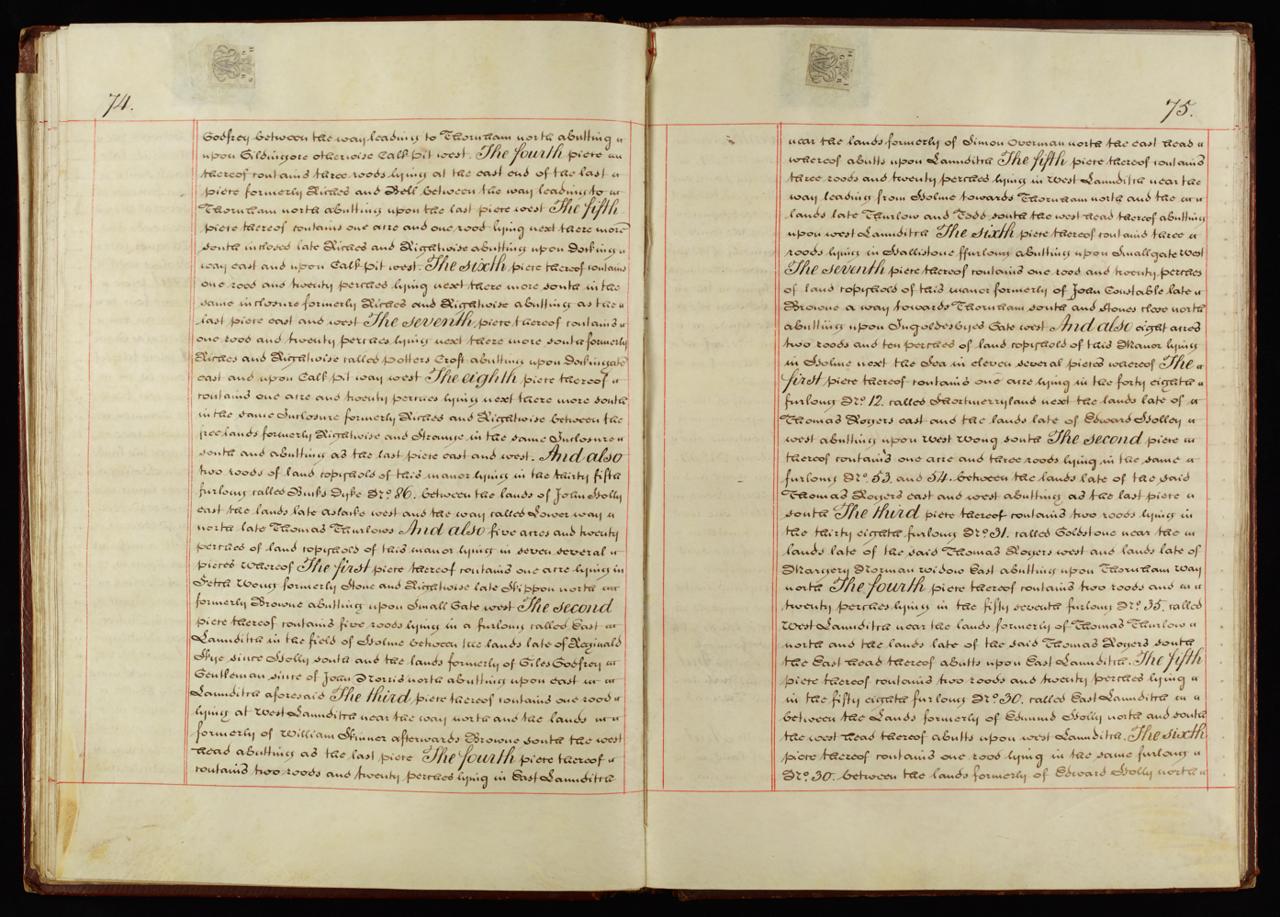 74.
Godfrey between the way leading to Thornham north abutting
upon Gildingore otherwise Calk Pit west. The fourth piece
thereof contains three roods lying at the east end of the last
piece formerly Riches and Bell between the way leading to
Thornham north abutting upon the last piece west The fifth
piece thereof contains one acre and one rood lying next there more
south inclosed late Riches and Rightwise abutting upon Docking
way east and upon Calk Pit west. The sixth piece thereof contains
one rood and twenty perches lying next there more south in the
same inclosure formerly Riches and Rightwise abutting as the
last piece east and west The seventh piece thereof contains
one rood and twenty perches lying next there more south formerly
Riches and Rightwise called Potters Croft abutting upon Dockingate
east and upon Calk Pit way west The eighth piece thereof
contains one acre and twenty perches lying next there more south
in the same Inclosure formerly Riches and Rightwise between the
free lands formerly Rightwise and Strange in the same Inclosure
south and abutting as the last piece east and west. And also
two roods of land copyhold of this manor lying in the thirty fifth
furlong called Bucks Dyke No. 86. between the lands of John Holly
east the lands late aslake west and the way called Lower way
north late Thomas Thurlows And also five acres and twenty
perches of land copyhold of this manor lying in seven several
pieces whereof The first piece thereof contains one acre lying in
Fetch Wong formerly Stone and Rightwise late Skippon north
formerly Browne abutting upon Small Gate west The second
piece thereof contains five roods lying in a furlong called East
Launditch in the field of Holme between the lands late of Reginald
Skye since Holly south and the lands formerly of Giles Godfrey
Gentleman since of John Norris north abutting upon east
Launditch aforesaid The third piece thereof contains one rood
lying at West Launditch near the way north and the lands
formerly of William Skinner afterwards Browne south the west
head abutting as the last piece The fourth piece thereof
contains two roods and twenty perches lying in East Launditch
75.
near the lands formerly of Simon Overman north the east head
whereof abutts upon Launditch The fifth piece thereof contains
three roods and twenty perches lying in West Launditch near the
way leading from Holme towards Thornham north and the
lands late Thurlow and Todd south the west head thereof abutting
upon west Launditch The sixth piece thereof contains three
roods lying in Hallistone ffurlong abutting upon Smallgate west
The seventh piece thereof contains one rood and twenty perches
of land copyhold of this manor formerly of John Constable late
Browne a way towards Thornham south and Stones close north
abutting upon Ingoldesbyes Gate west And also eight acres
two roods and ten perches of land copyhold of this Manor lying
in Holme next the Sea in eleven several pieces whereof The
first piece thereof contains one acre lying in the forty eighth
furlong No. 12. called Shortmerryland next the lands late of
Thomas Rogers east and the lands late of Edward Holley
west abutting upon West Wong south The second piece
thereof contains one acre and three roods lying in the same
furlong No. 53. and 54. between the lands late of the said
Thomas Rogers east and west abutting as the last piece
south The third piece thereof contains two roods lying in
the thirty eighth furlong No. 31. called Goldstone near the
lands late of the said Thomas Rogers west and lands late of
Margery Norman widow East abutting upon Thornham way
north The fourth piece thereof contains two roods and
twenty perches lying in the fifty seventh furlong No. 35. called
West Launditch near the lands formerly of Thomas Thurlow
north and the lands late of the said Thomas Rogers south
the East head thereof abutts upon East Launditch. The fifth
piece thereof contains two roods and twenty perches lying
in the fifty eighth furlong No. 30. called East Launditch
between the Lands formerly of Edmund Holly north and south
the west head thereof abutts upon west Launditch. The sixth
piece thereof contains one rood lying in the same furlong
No. 30. between the lands formerly of Edward Holly north